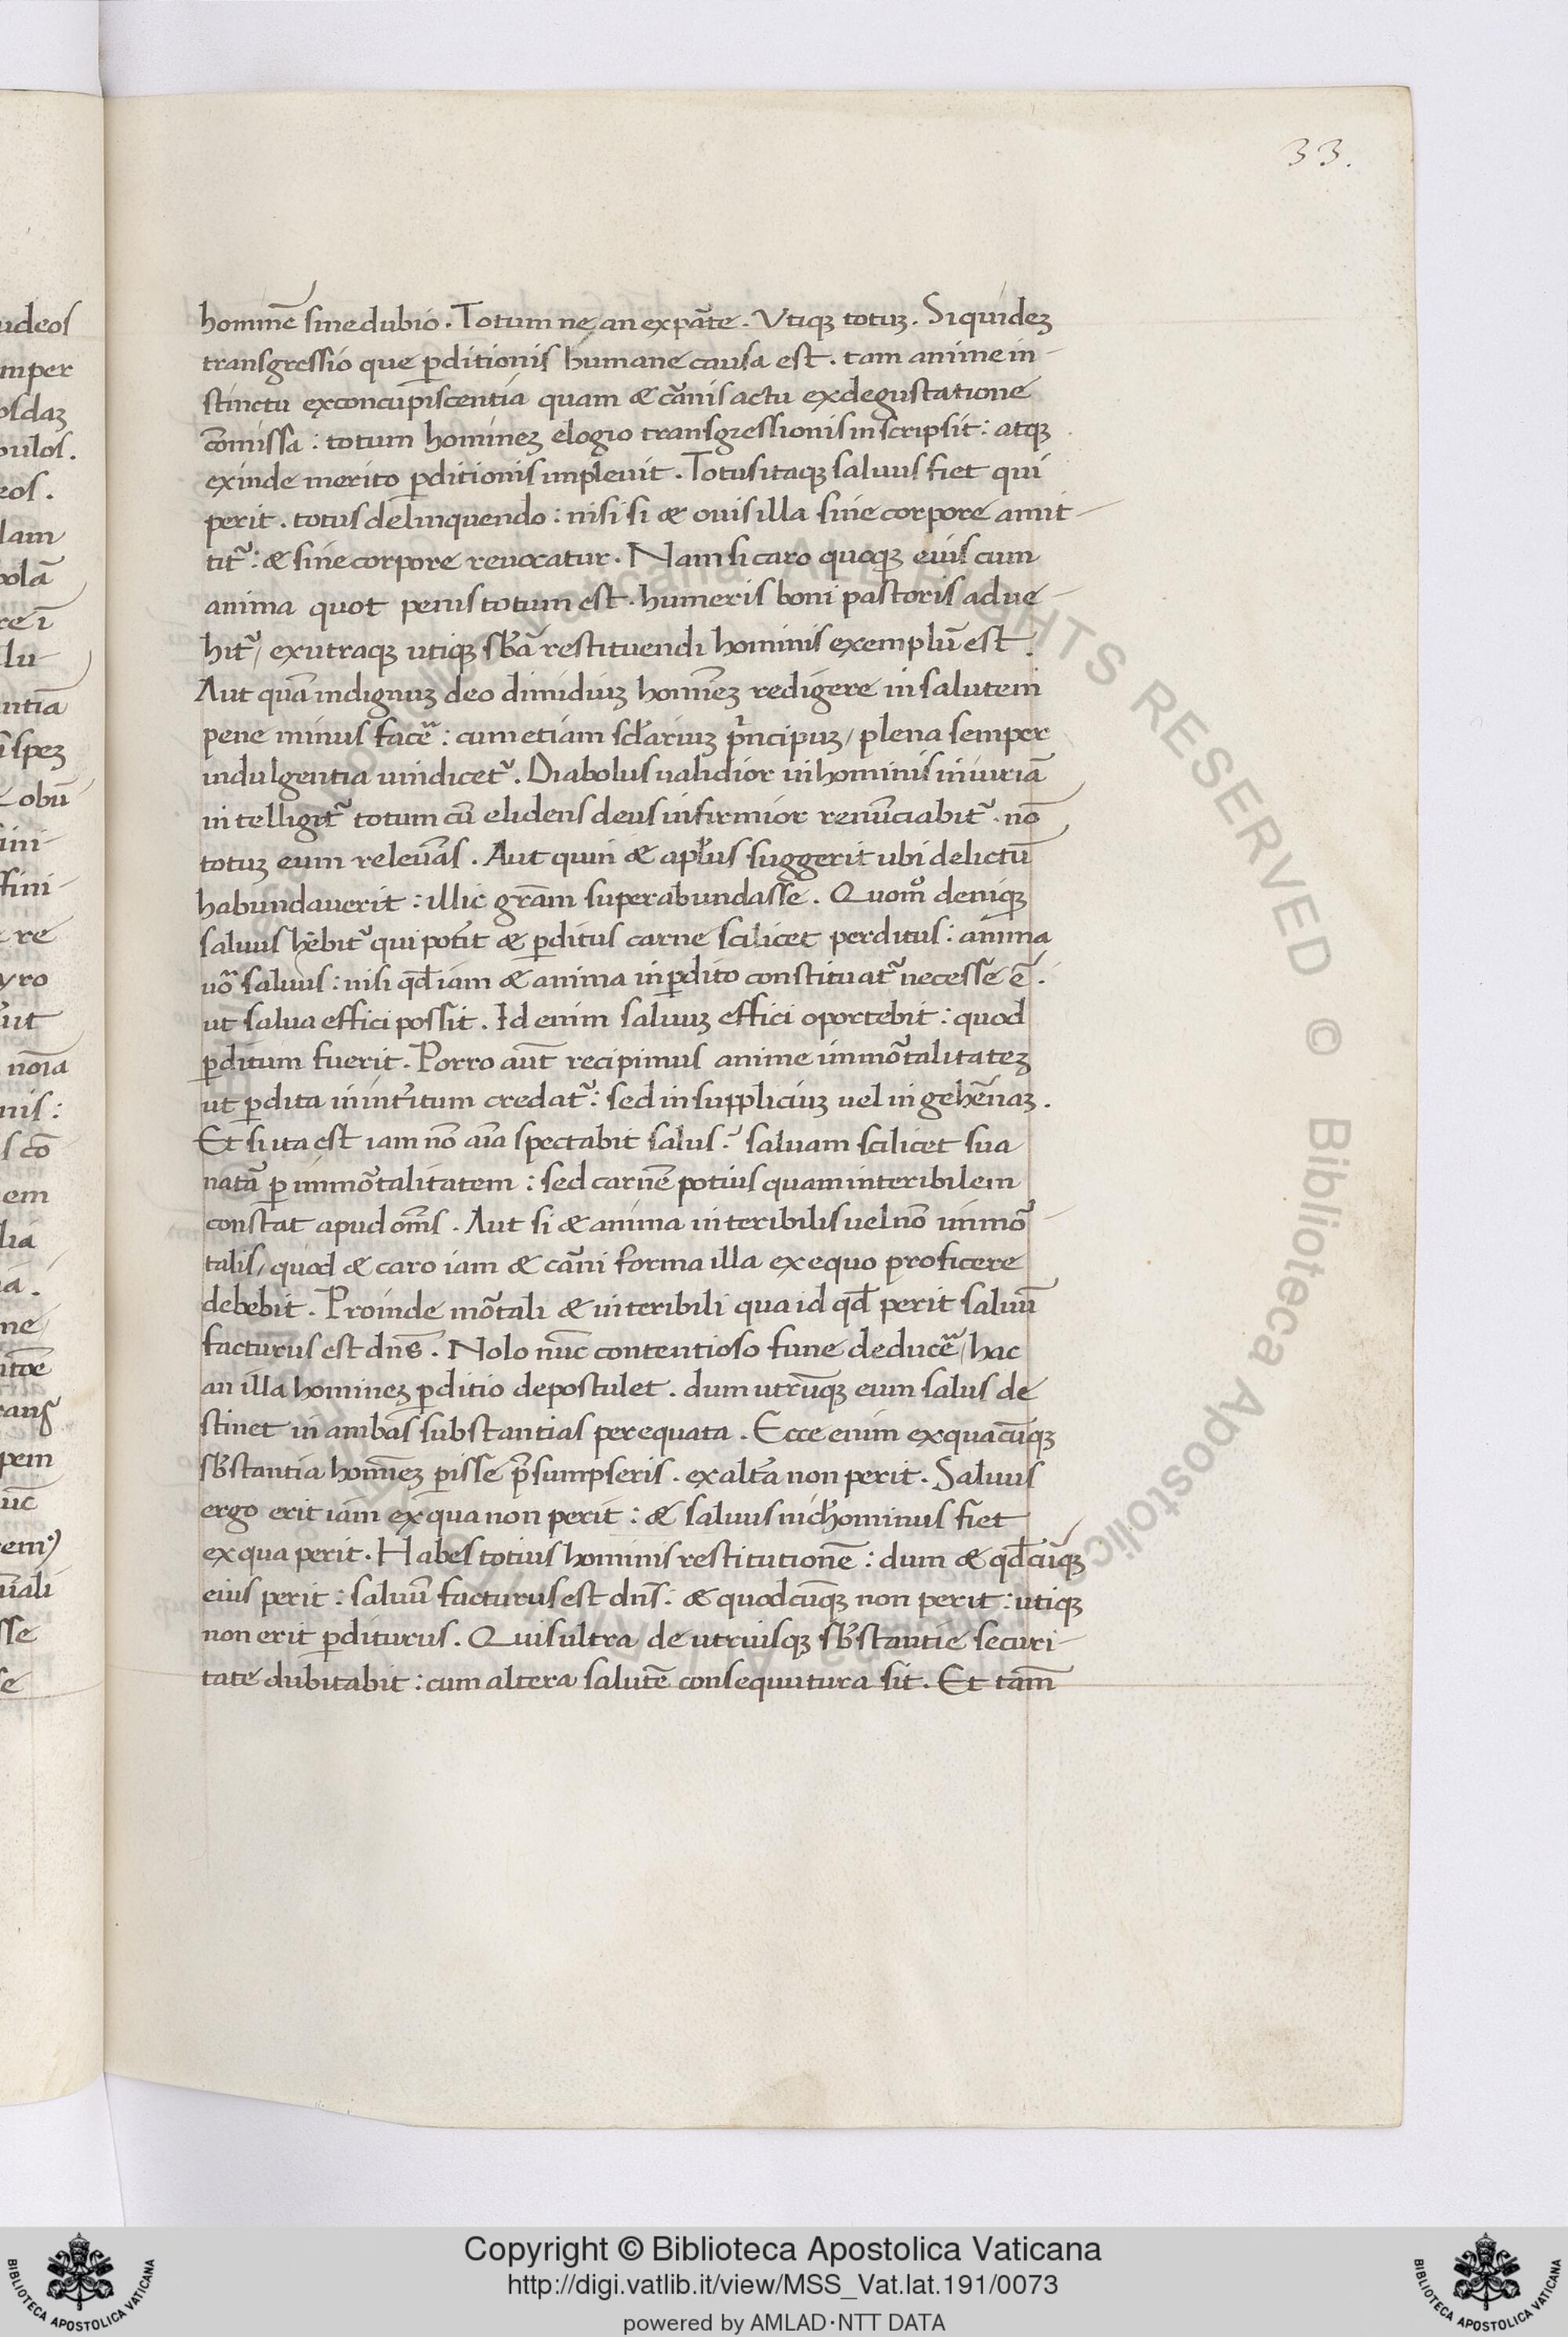 33.
hominē sine dubio. Totum ne, an ex pāte. Vtiqꝫ totuꝫ. Siquideꝫ
transgressio que ꝑditionis humane causa est. tam anime in-
stinctu ex concupiscentia quam & cānis actu ex degustatione
cōmissa: totum homineꝫ elogio transgressionis inscripsit: atqꝫ
exinde merito ꝑditionis impleuit. Totus itaqꝫ saluus fiet qui
perit. totus delinquendo: nisi si & ouis illa sine corpore amit-
titᷣ: & sine corpore reuocatur. Nam si caro quoqꝫ eius cum
anima quot penis totum est. humeris boni pastoris adue-
hitᷣ/ ex utraqꝫ utiqꝫ sƀa restituendi hominis exemplū est.
Aut quā indignuꝫ deo dimidiuꝫ homīeꝫ redigere in salutem
pene minus facē: cum etiam sclariuꝫ p̄ncipuꝫ/ plena semper
indulgentia uindicetᷣ. Diabolus ualidior in hominis iniuriā
intelligitᷣ totum cū elidens deus infirmior renūciabitᷣ. nō
totuꝫ eum releuās. Aut quin & aplus suggerit ubi delictū
habundauerit: illic grām superabundasse. Quomͦ deniqꝫ
saluus hēbitᷣ qui pot̄it & ꝑditus carne scilicet perditus: anima
uō saluus: nisi qđ iam & anima in ꝑdito constituatᷣ necesse ē.
ut salua effici possit. Id enim saluuꝫ effici oportebit: quod
ꝑditum fuerit. Porro aūt recipimus anime immōtalitateꝫ
ut ꝑdita in int̄itum credatᷣ: sed in suppliciuꝫ uel in gehēnaꝫ.
Et si ita est iam nō aīa spectabit salus? saluam scilicet sua
natā ꝑ immōtalitatem: sed carnē potius quam interibilem
constat apud om̄s. Aut si & anima interibilis uel nō immō-
talis, quod & caro iam & cāni forma illa ex equo proficere
debebit. Proinde mōtali & interibili qua id qđ perit saluū
facturus est dn̄s. Nolo nūc contentioso fune deducē/ hac
an illa homineꝫ ꝑditio depostulet. dum utrūqꝫ eum salus de
stinet in ambas substantias perequata. Ecce enim ex quacūqꝫ
sƀstantia homīeꝫ ꝑisse p̄sumpseris. ex alt̄a non perit. Saluus
ergo erit iam ex qua non perit: & saluus nichominus fiet
ex qua perit. Habes totius hominis restitutionē: dum & qđcūqꝫ
eius perit: saluū facturus est dn̄s: & quodcūqꝫ non perit: utiqꝫ
non erit ꝑditurus. Quis ultra de utriusqꝫ sƀstantie securi-
tate dubitabit: cum altera salutē consequutura sit. Et tam̄
Copyright © Biblioteca Apostolica Vaticana
http://digi.vatlib.it/view/MSS_Vat.lat.191/0073
powered by AMLAD·NTT DATA